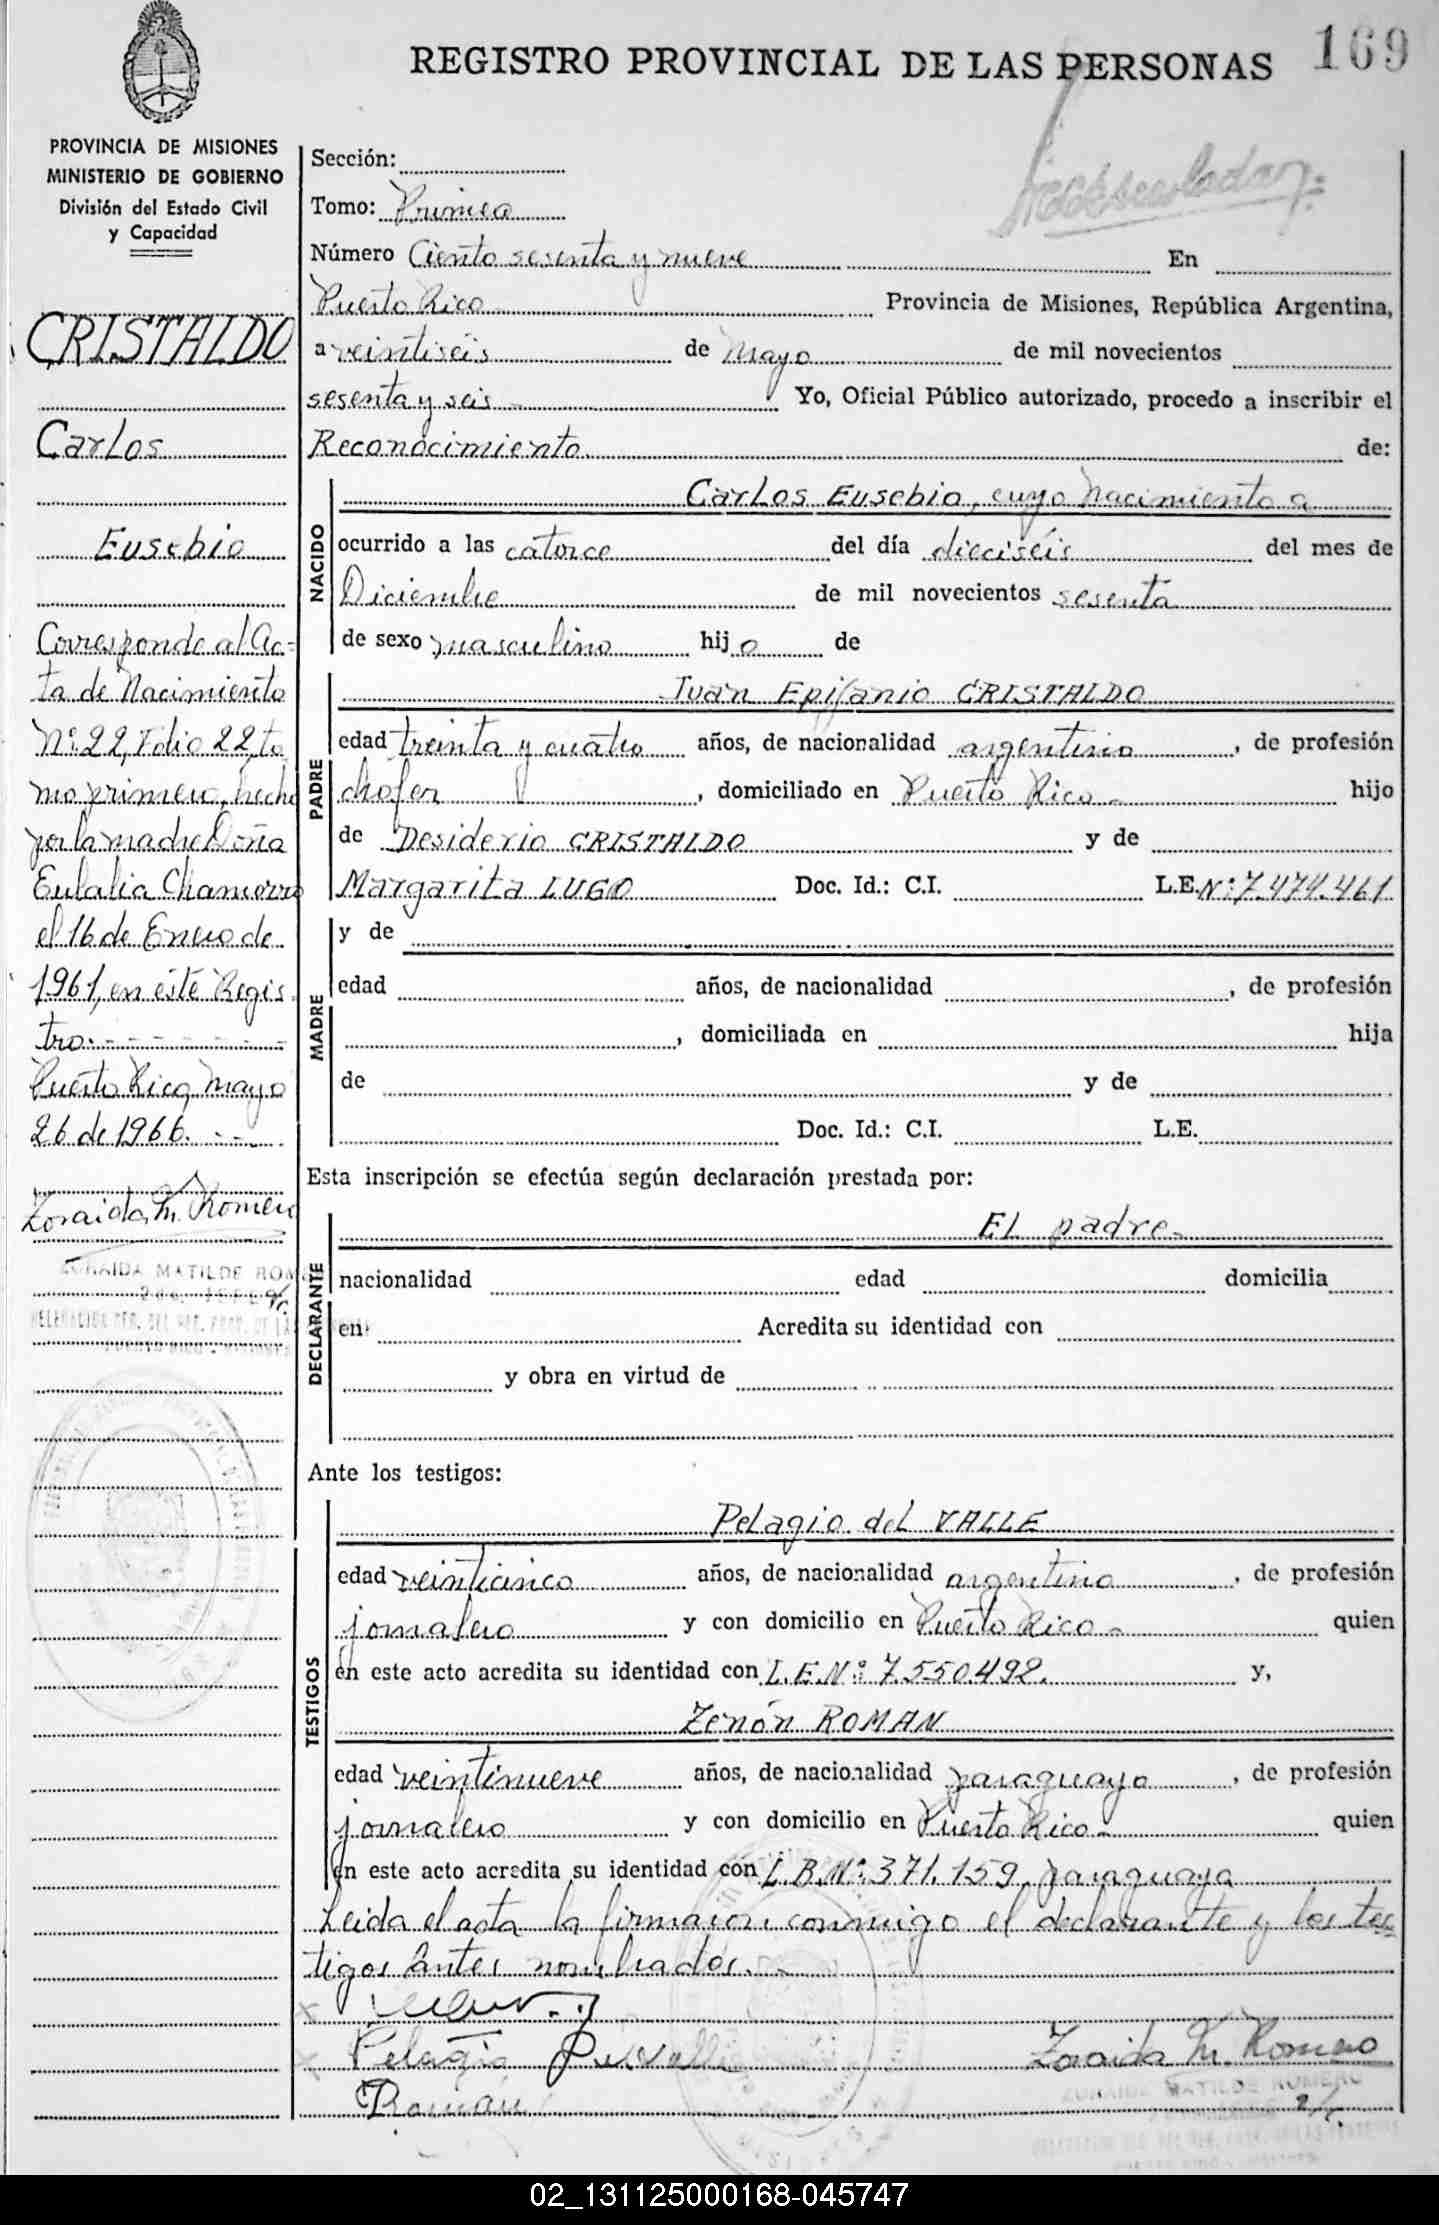 REGISTRO PROVINCIAL DE LAS PERSONAS 169
PROVINCIA DE MISIONES
MINISTERIO DE GOBIERNO
División del Estado Civil
y Capacidad
CRISTALDO
Carlos
Eusebio
Corresponde al Ac-
ta de Nacimiento
Nº 22, Folio 22, to
mo primero, hecho
por la madre Doña
Eulalia Chamorro
el 16 de Enero de
1961, en este Regis
tro.- - - - - - -
Puerto Rico, Mayo
26 de 1966. - --
Zoraida M. Romero
ZORAIDA MATILDE ROM
Sección:
Tomo: Primero
Número Ciento sesenta y nueve En
Puerto Rico Provincia de Misiones, República Argentina,
a veintiseis de Mayo de mil novecientos
sesenta y seis - Yo, Oficial Público autorizado, procedo a inscribir el
Reconocimiento de:
NACIDO
Carlos Eusebio, cuyo Nacimiento a
ocurrido a las catorce del día dieciséis del mes de
Diciembre de mil novecientos sesenta
de sexo masculino hijo de
PADRE
Juan Epifanio CRISTALDO
edad treinta y cuatro años, de nacionalidad argentino, de profesión
chofer, domiciliado en Puerto Rico - hijo
de Desiderio CRISTALDO y de
Margarita LUGO Doc. Id.: C.I. L.E. Nº: 7.474.461
MADRE
y de
edad años, de nacionalidad , de profesión
, domiciliada en hija
de y de
Doc. Id.: C.I. L.E.
Esta inscripción se efectúa según declaración prestada por:
DECLARANTE
El padre -
nacionalidad edad domicilia
en Acredita su identidad con
y obra en virtud de
Ante los testigos:
TESTIGOS
Pelagio del VALLE
edad veinticinco años, de nacionalidad argentino, de profesión
jornalero y con domicilio en Puerto Rico - quien
en este acto acredita su identidad con L.E.Nº: 7.550.492. y,
Zenón ROMAN
edad veintinueve años, de nacionalidad paraguayo, de profesión
jornalero y con domicilio en Puerto Rico - quien
en este acto acredita su identidad con L.B.Nº: 371.159, paraguaya
Leida el acta la firmaron conmigo el declarante y los tes
tigos antes nombrados. -
Pelagio del Valle
Zoraida M. Romero
Román
ZORAIDA MATILDE ROMERO
02_131125000168-045747